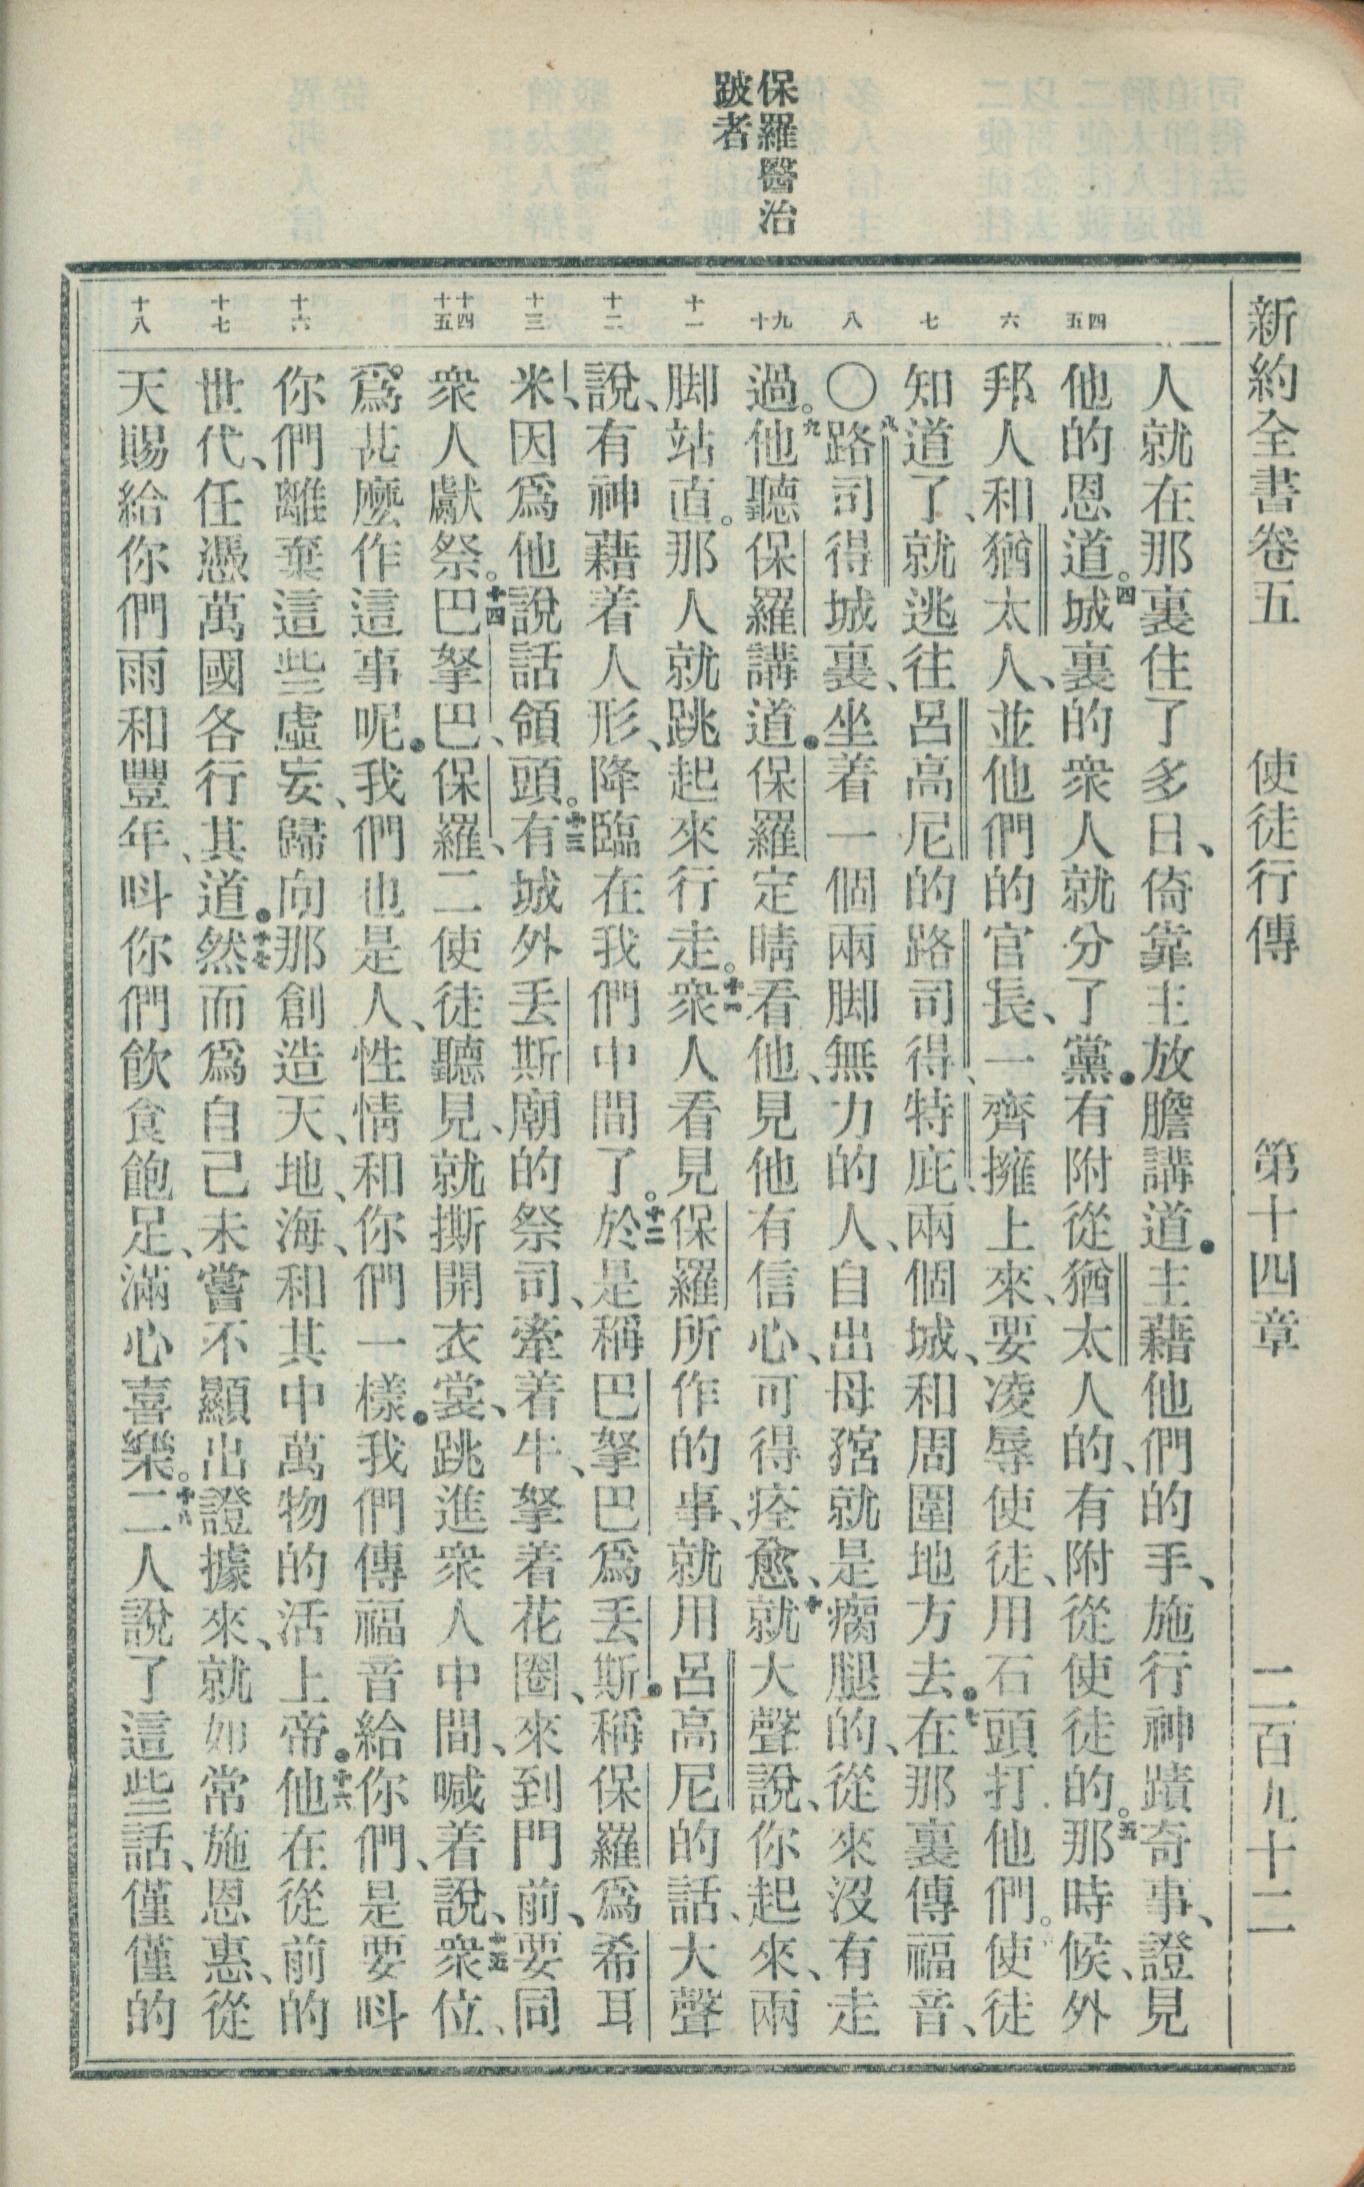 新約全書卷五　使徒行傳　第十四章　二百九十二
保羅醫治
跛者
四
五
六
七
八
九
十
十一
十二
十三
十四
十五
十六
十七
十八
人就在那裏住了多日、倚靠主放膽講道．主藉他們的手、施行神蹟奇事、證見
他的恩道。四城裏的衆人就分了黨．有附從猶太人的、有附從使徒的。五那時候、外
邦人和猶太人、並他們的官長、一齊擁上來、要凌辱使徒、用石頭打他們。使徒
知道了、就逃往呂高尼的路司得、特庇、兩個城、和周圍地方去．七在那裏傳福音、
〇八路司得城裏、坐着一個兩脚無力的人、自出母㛛就是瘸腿的、從來沒有走
過。九他聽保羅講道．保羅定睛看他、見他有信心、可得痊愈、十就大聲說、你起來、兩
脚站直。那人就跳起來行走。十一衆人看見保羅所作的事、就用呂高尼的話、大聲
說、有神藉着人形、降臨在我們中間了。十二於是稱巴拏巴爲丢斯．稱保羅爲希耳
米、因爲他說話領頭。十三有城外丢斯廟的祭司、牽着牛、拏着花圈、來到門前、要同
衆人獻祭。十四巴拏巴、保羅、二使徒聽見、就撕開衣裳、跳進衆人中間、喊着說、十五衆位、
爲甚麼作這事呢．我們也是人、性情和你們一樣．我們傳福音給你們、是要呌
你們離棄這些虛妄、歸向那創造天、地、海、和其中萬物的活上帝．十六他在從前的
世代、任憑萬國各行其道．十七然而爲自己未嘗不顯出證據來、就如常施恩惠、從
天賜給你們雨和豐年、呌你們飲食飽足、滿心喜樂。十八二人說了這些話、僅僅的